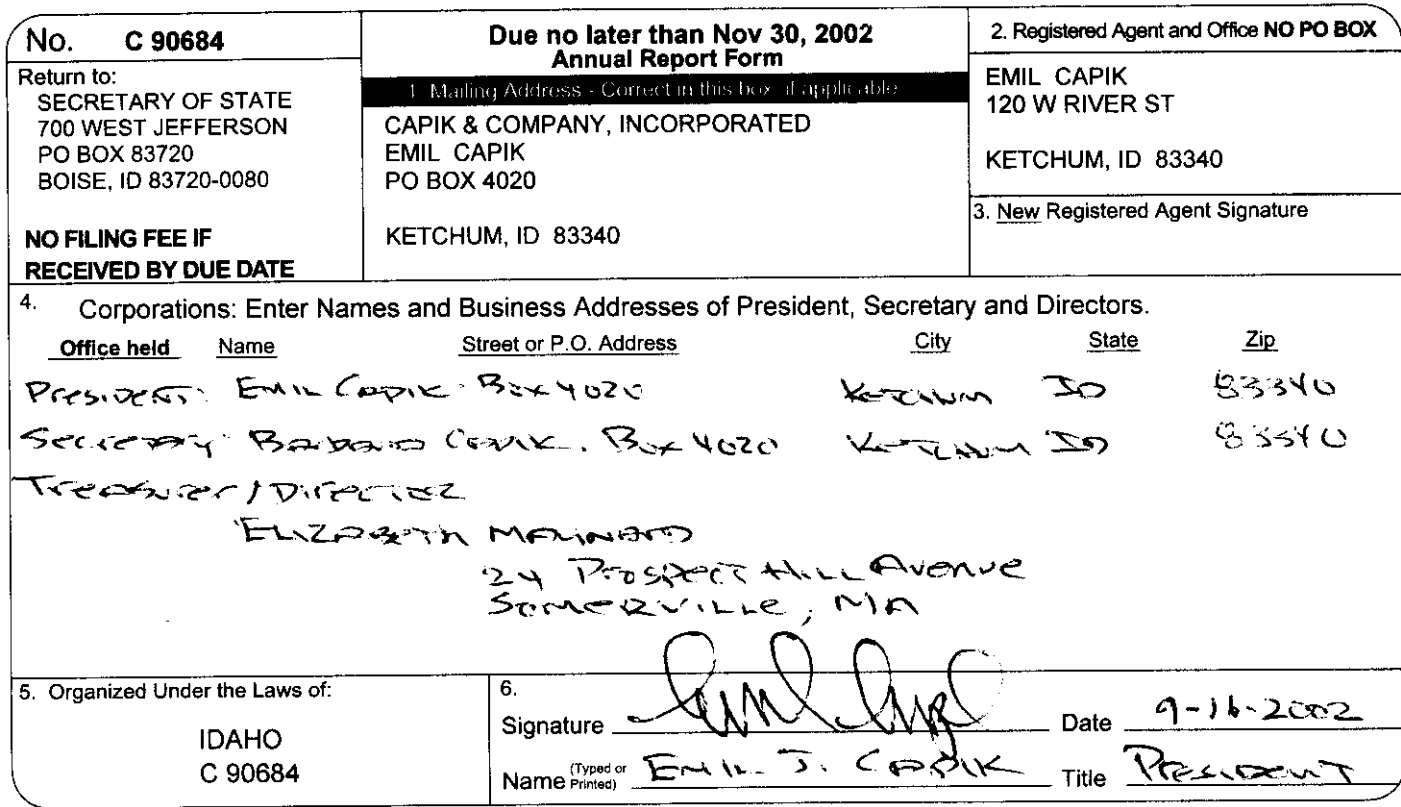 No. C 90684
Return to:
SECRETARY OF STATE
700 WEST JEFFERSON
PO BOX 83720
BOISE, ID 83720-0080
NO FILING FEE IF
RECEIVED BY DUE DATE
Due no later than Nov 30, 2002
Annual Report Form
1. Mailing Address - Correct in this box if applicable
CAPIK & COMPANY, INCORPORATED
EMIL CAPIK
PO BOX 4020
KETCHUM, ID 83340
2. Registered Agent and Office NO PO BOX
EMIL CAPIK
120 W RIVER ST
KETCHUM, ID 83340
3. New Registered Agent Signature
4. Corporations: Enter Names and Business Addresses of President, Secretary and Directors.
Office held Name Street or P.O. Address City State Zip
President: Emil Capik. Box 4020 Ketchum ID 83340
Secretary: Barbara Capik. Box 4020 Ketchum ID 83340
Treasurer/Director
Elizabeth Maynard
24 Prospect Hill Avenue
Somerville, MA
5. Organized Under the Laws of:
IDAHO
C 90684
6.
Signature Date 9-16-2002
Name (Typed or Printed) Emil J. Capik Title President